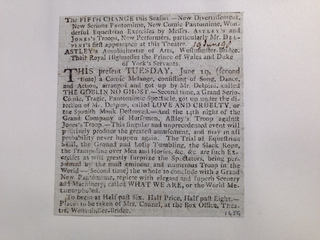 The FIFTH CHANGE this Season—New Divertisement,
New Serious Pantomime, New Comic Pantomime, Won-
derful Equestrian Exercises by Messrs. ASTLEY's and
JONES's Troops, New Performers, particularly Mr. DEL-
PINI's first appearance at this Theatre.
ASTLEY's Amphitheatre of Arts, Westminster-Bridge.
Their Royal Highnesses the Prince of Wales and Duke
of York's Servants.
THIS present TUESDAY, June 19, (second
time) a Comic Melange, consisting of Song, Dance,
and Action, arranged and got up by Mr. Delpini, called
THE GOBLIN NO GHOST—Second time, a Grand Serio-
Comic, Tragic, Pantomimic Spectacle, got up under the di-
rection of Mr. Delpini, called LOVE AND CRUELTY, or
the Spanish Monk Dethroned.—And the 14th night of the
Grand Company of Horsemen, Astley's Troop against
Jones's Troop.—This singular and unprecedented event will
positively produce the greatest amusement, and may in all
probability never happen again. The Trial of Equestrian
Skill, the Ground and Lofty Tumbling, the Slack Rope,
the Trampoline over Men and Horses, &c. &c. are such Ex-
ercises as will greatly surprise the Spectators, being per-
formed by the most eminent and numerous Troop in the
World—Second time, the whole to conclude with a Grand
New Pantomime, replete with elegant and superb Scenery
and Machinery, called WHAT WE ARE, or the World Me-
tamorphosed.
To begin at Half past Six. Half Price, Half past Eight.—
Places to be taken of Mrs. Connel, at the Box Office, Thea-
tre, Westminster-Bridge.